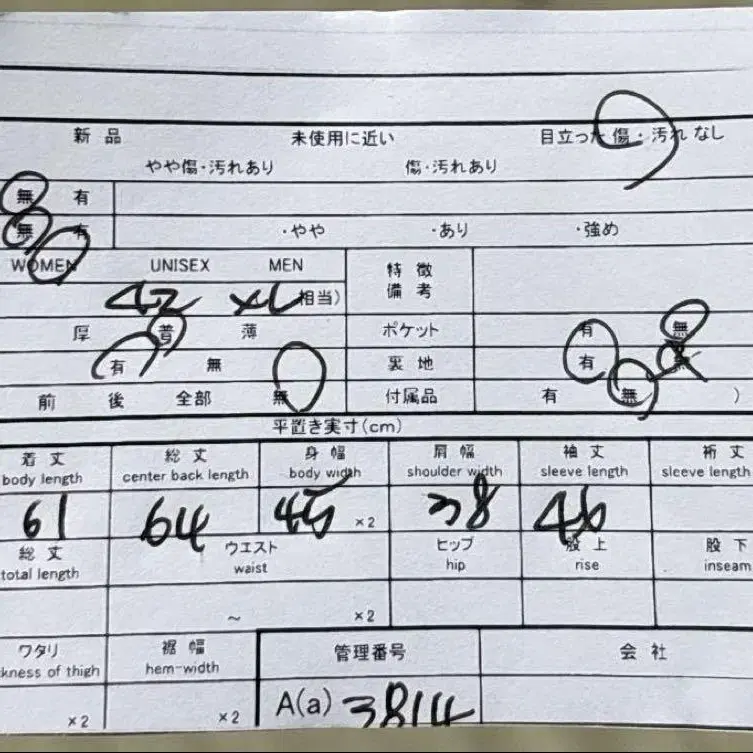 新品 未使用に近い 目立った傷・汚れなし
やや傷・汚れあり 傷・汚れあり
無 有
無 有 ・やや ・あり ・強め
WOMEN UNISEX MEN 特徴
備考
42 XL 相当)
厚 普 薄 ポケット 有 無
有 無 裏地 有 無
前 後 全部 無 付属品 有 無 )
平置き実寸(cm)
着丈 総丈 身幅 肩幅 袖丈 裄丈
body length center back length body width shoulder width sleeve length sleeve length
61 64 ×2 38 46
総丈 ウエスト ヒップ 股上 股下
total length waist hip rise inseam
～ ×2
ワタリ 裾幅 管理番号 会社
kness of thigh hem-width
×2 ×2 A(a) 3814